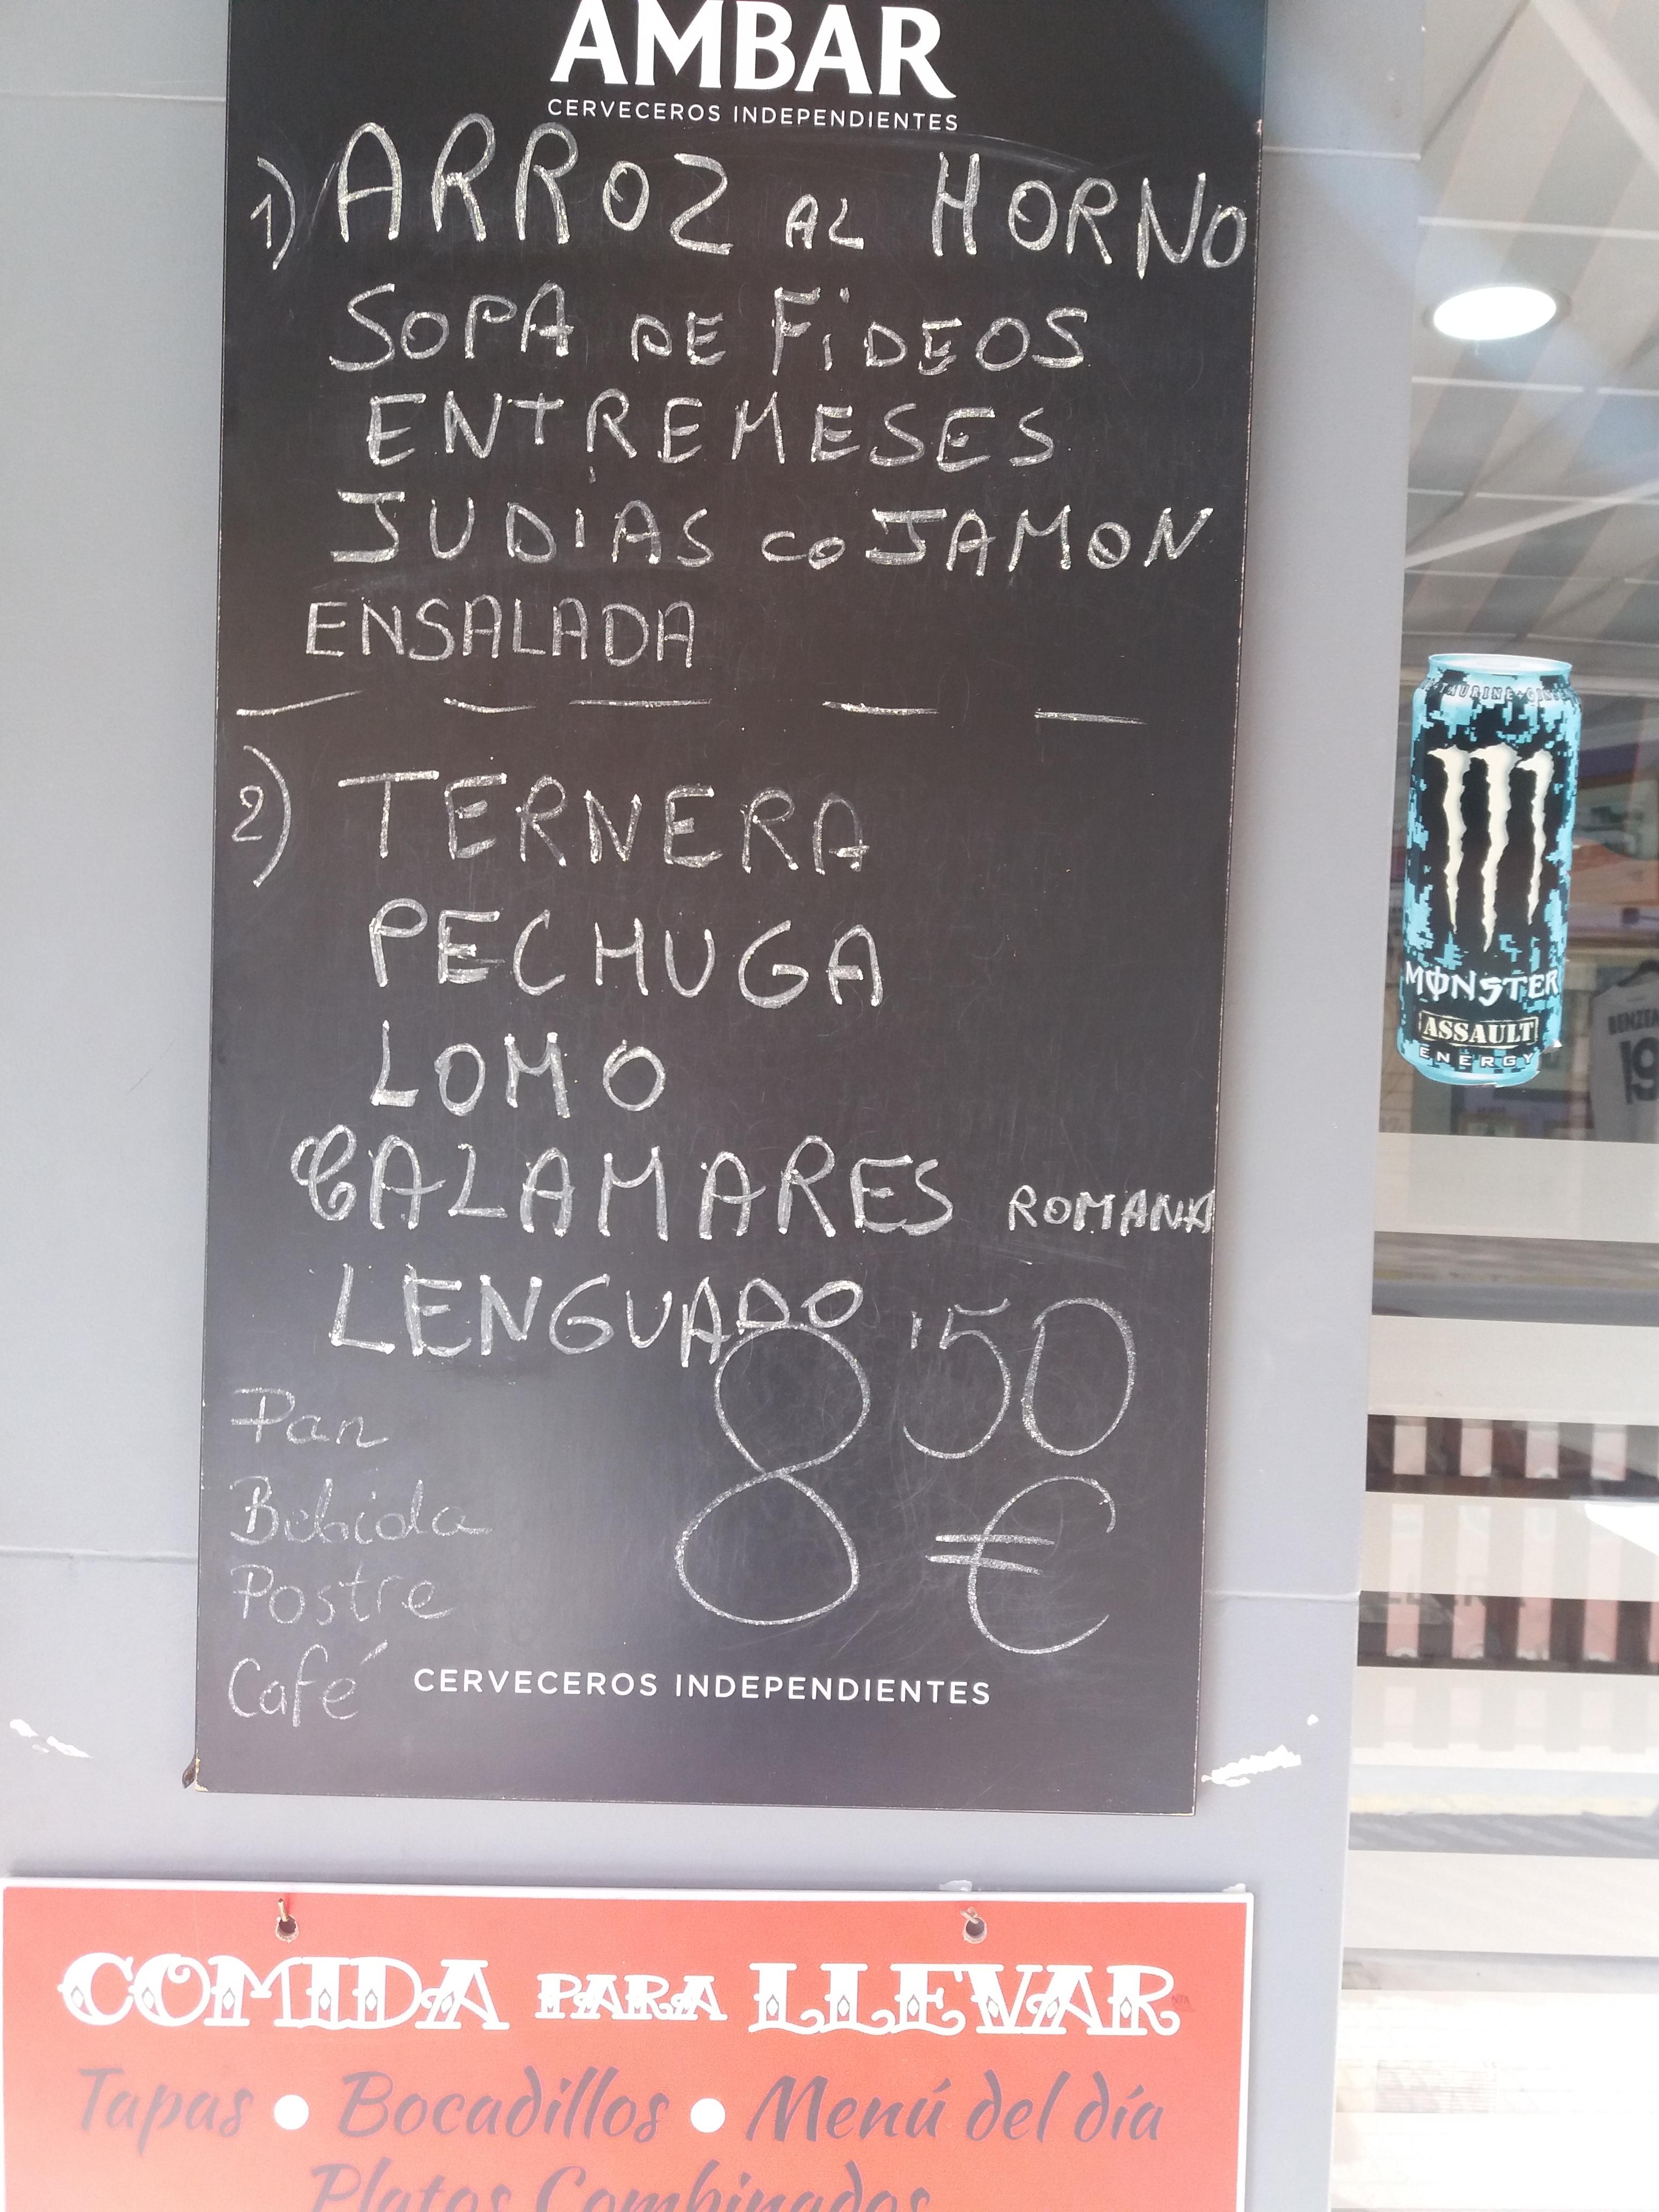 AMBAR
CERVECEROS INDEPENDIENTES
1) ARROZ AL HORNO
SOPA DE FiDEOS
ENTREMESES
JUDIAS co JAMON
ENSALADA
2) TERNERA
PECHUGA
LOMO
CALAMARES ROMANA
LENGUADO
8'50
€
Pan
Bebida
Postre
Café
CERVECEROS INDEPENDIENTES
COMIDA PARA LLEVAR
Tapas • Bocadillos • Menú del día
Platos Combinados
TAURINE+
MONSTER
ASSAULT
ENERGY
19